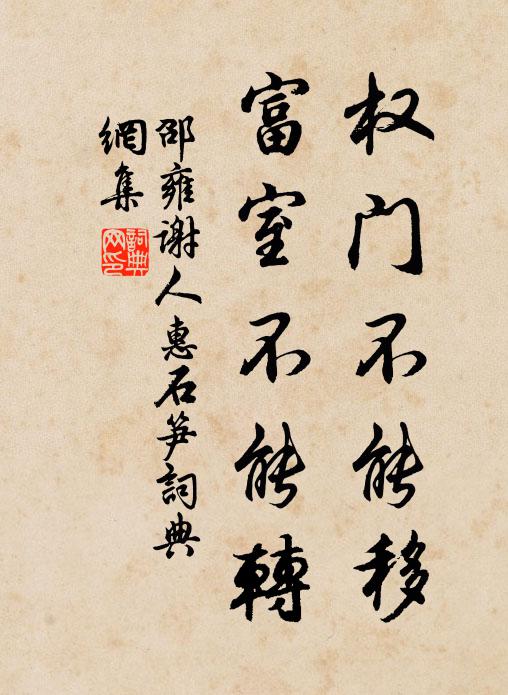 权门不能移
富室不能轉
邵雍谢人惠石笋詞典
網集
詞典
网印